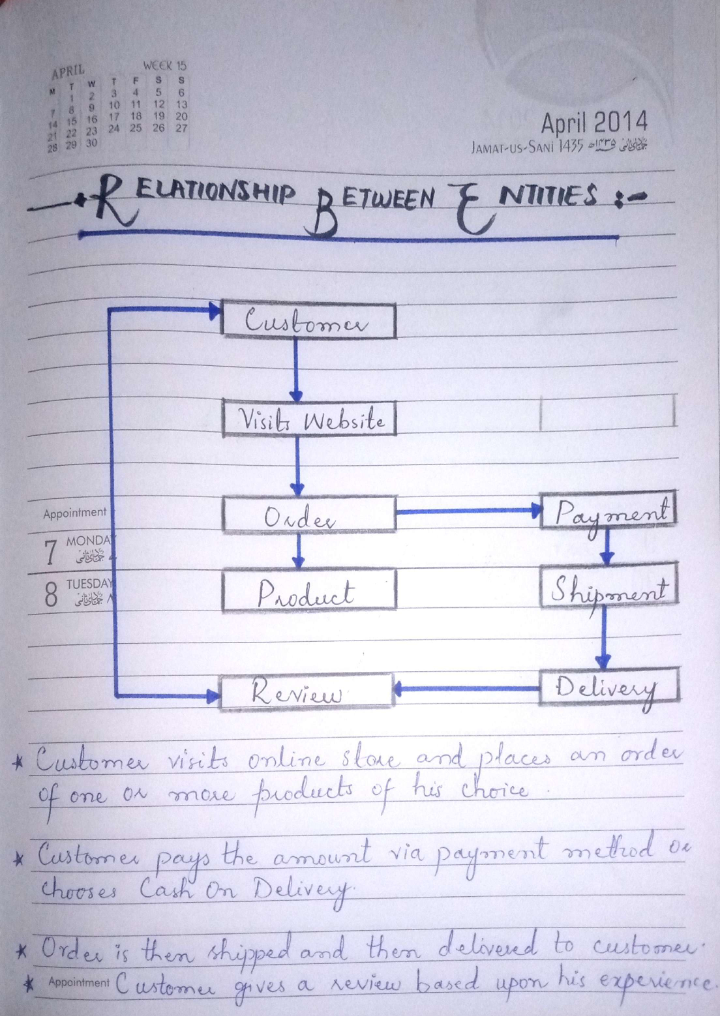 APRIL WEEK 15
M T W T F S S
1 2 3 4 5 6
7 8 9 10 11 12 13
14 15 16 17 18 19 20
21 22 23 24 25 26 27
28 29 30
April 2014
JAMAT-US-SANI 1435
RELATIONSHIP BETWEEN ENTITIES :-
Customer
Visits Website
Order
Payment
Product
Shipment
Review
Delivery
Appointment
7 MONDA
8 TUESDAY
* Customer visits online store and places an order
of one or more products of his choice.
* Customer pays the amount via payment method or
chooses Cash On Delivery.
* Order is then shipped and then delivered to customer.
Appointment
* Customer gives a review based upon his experience.